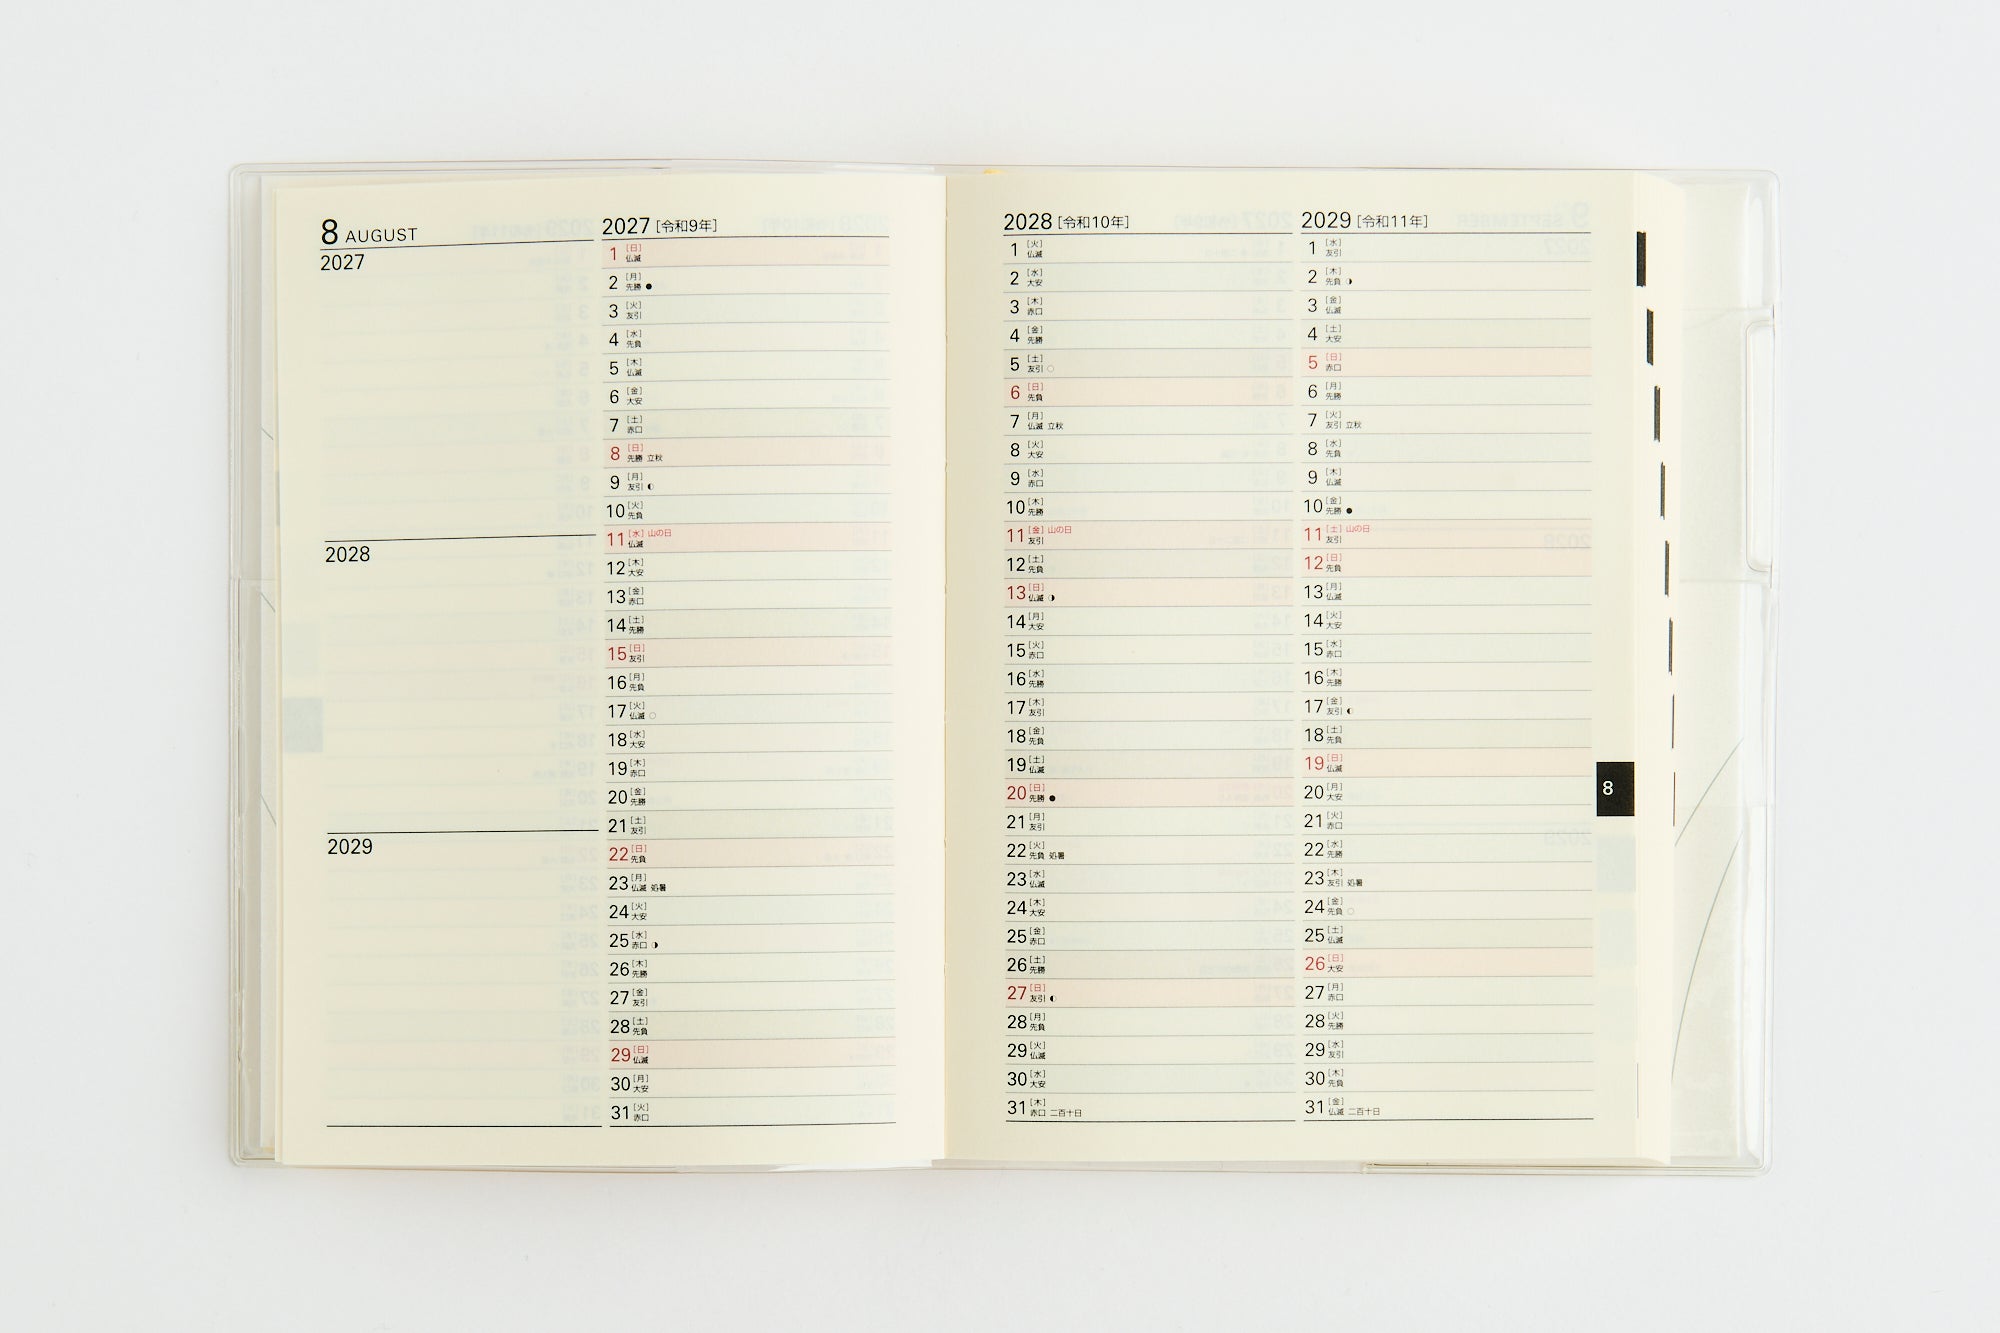 8 AUGUST
2027
2028
2029
2027 [令和9年]
1 [日] 仏滅
2 [月] 先勝 ●
3 [火] 友引
4 [水] 先負
5 [木] 仏滅
6 [金] 大安
7 [土] 赤口
8 [日] 先勝 立秋
9 [月] 友引 ◐
10 [火] 先負
11 [水] 山の日 仏滅
12 [木] 大安
13 [金] 赤口
14 [土] 先勝
15 [日] 友引
16 [月] 先負
17 [火] 仏滅 ○
18 [水] 大安
19 [木] 赤口
20 [金] 先勝
21 [土] 友引
22 [日] 先負
23 [月] 仏滅 処暑
24 [火] 大安
25 [水] 赤口 ◑
26 [木] 先勝
27 [金] 友引
28 [土] 先負
29 [日] 仏滅
30 [月] 大安
31 [火] 赤口
2028 [令和10年]
1 [火] 仏滅
2 [水] 大安
3 [木] 赤口
4 [金] 先勝
5 [土] 友引 ○
6 [日] 先負
7 [月] 仏滅 立秋
8 [火] 大安
9 [水] 赤口
10 [木] 先勝
11 [金] 山の日 友引
12 [土] 先負
13 [日] 仏滅 ◑
14 [月] 大安
15 [火] 赤口
16 [水] 先勝
17 [木] 友引
18 [金] 先負
19 [土] 仏滅
20 [日] 先勝 ●
21 [月] 友引
22 [火] 先負 処暑
23 [水] 仏滅
24 [木] 大安
25 [金] 赤口
26 [土] 先勝
27 [日] 友引 ◐
28 [月] 先負
29 [火] 仏滅
30 [水] 大安
31 [木] 赤口 二百十日
2029 [令和11年]
1 [水] 友引
2 [木] 先負 ◑
3 [金] 仏滅
4 [土] 大安
5 [日] 赤口
6 [月] 先勝
7 [火] 友引 立秋
8 [水] 先負
9 [木] 仏滅
10 [金] 先勝 ●
11 [土] 山の日 友引
12 [日] 先負
13 [月] 仏滅
14 [火] 大安
15 [水] 赤口
16 [木] 先勝
17 [金] 友引 ◐
18 [土] 先負
19 [日] 仏滅
20 [月] 大安
21 [火] 赤口
22 [水] 先勝
23 [木] 友引 処暑
24 [金] 先負 ○
25 [土] 仏滅
26 [日] 大安
27 [月] 赤口
28 [火] 先勝
29 [水] 友引
30 [木] 先負
31 [金] 仏滅 二百十日
8